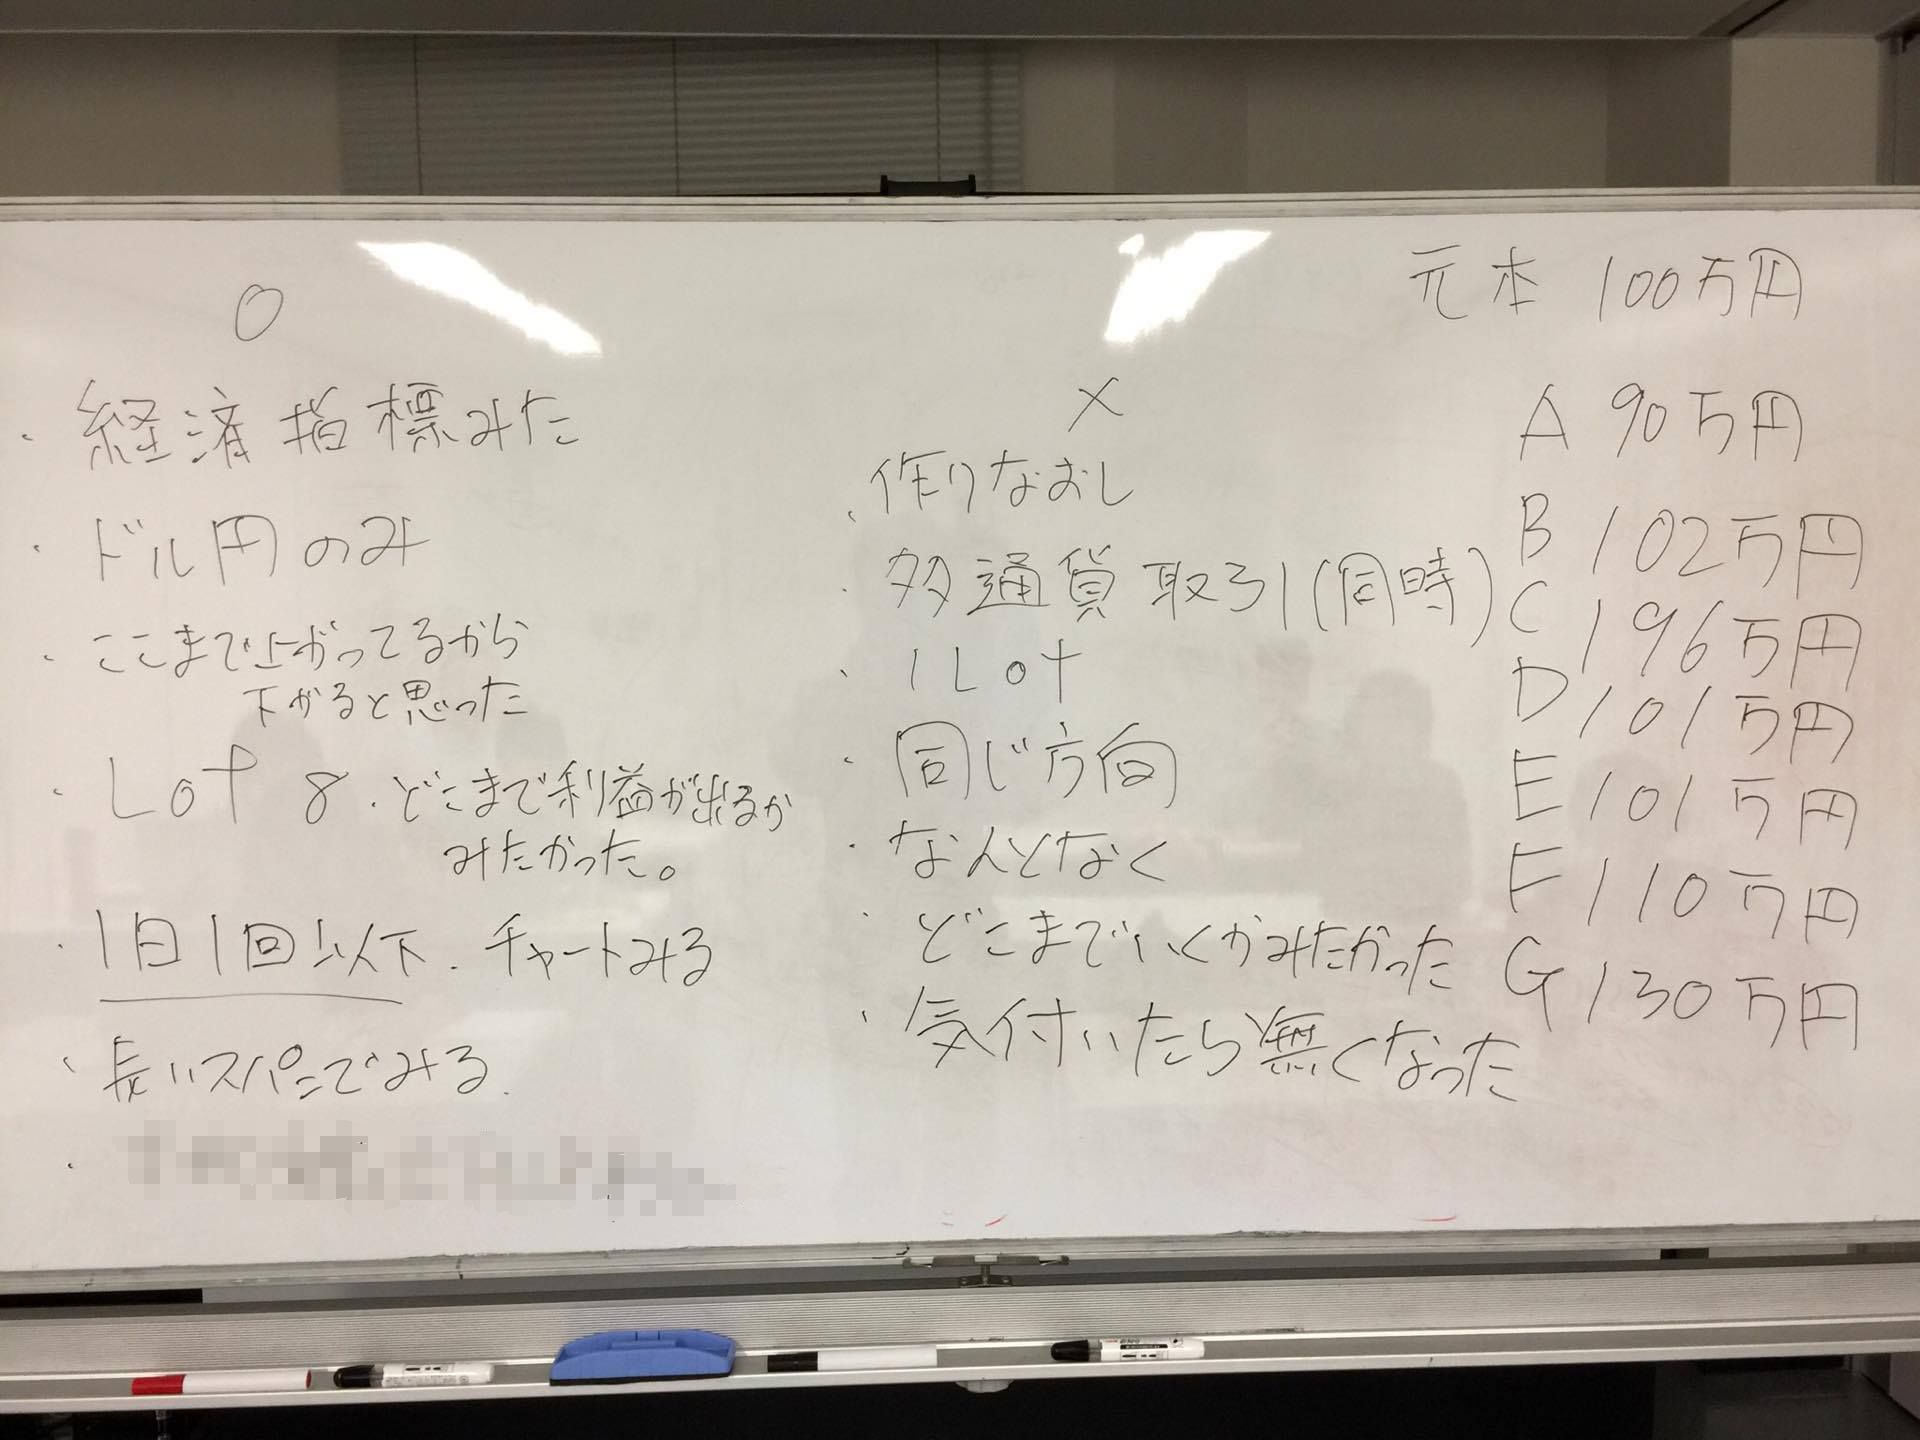 ○
・経済指標みた
・ドル円のみ
・ここまで上がってるから
下がると思った
・Lot 8 ・どこまで利益が出るか
みたかった。
・1日1回以下．チャートみる
・長いスパンでみる．
×
・作りなおし
・多通貨取引(同時)
・1Lot
・同じ方向
・なんとなく
・どこまでいくかみたかった
・気付いたら無くなった
元本 100万円
A 90万円
B 102万円
C 196万円
D 101万円
E 101万円
F 110万円
G 130万円